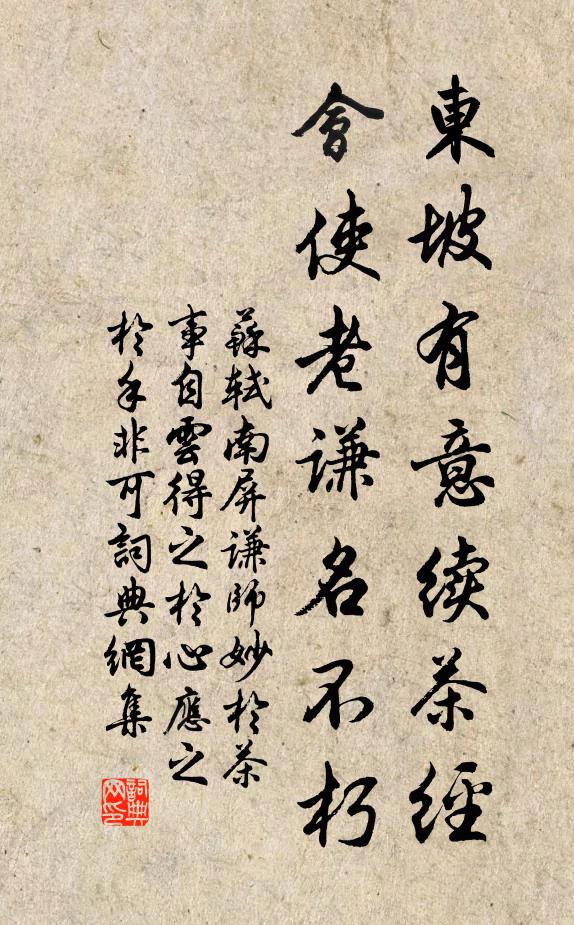 東坡有意續茶經
會使老謙名不朽
蘇軾南屏謙師妙於茶
事自雲得之於心應之
於手非可詞典網集
詞典網印